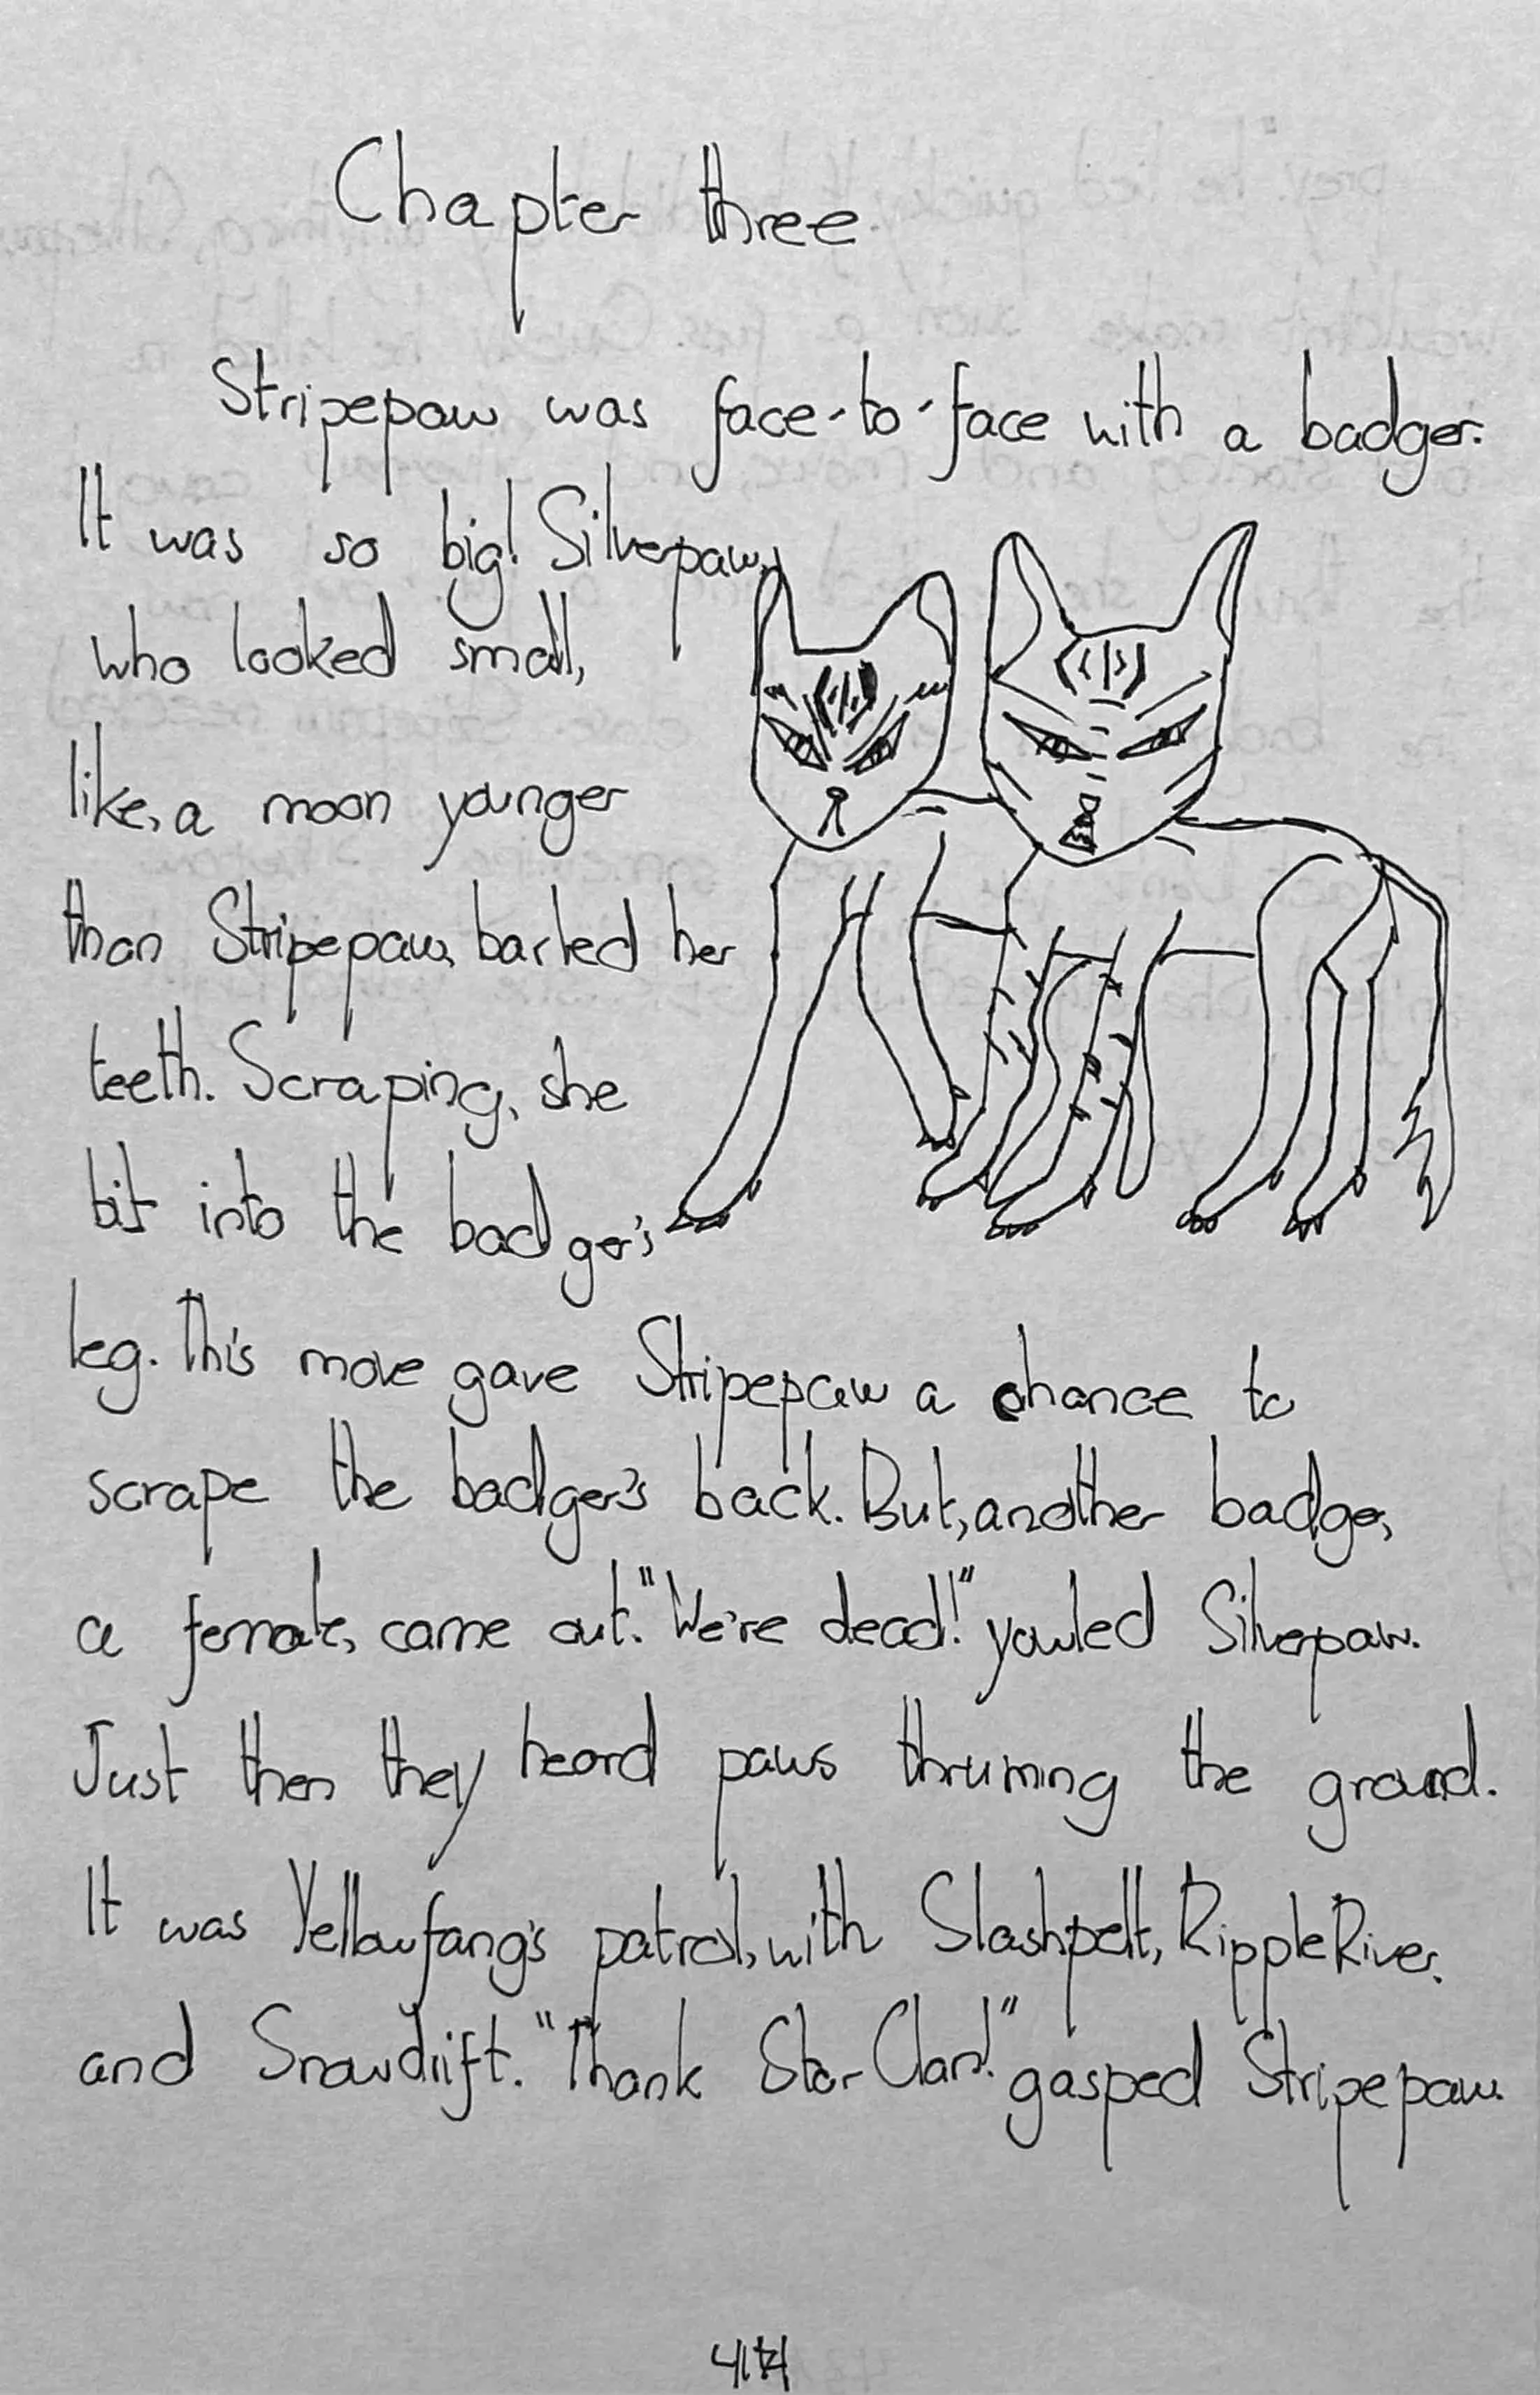 Chapter three.
Stripepaw was face-to-face with a badger.
It was so big! Silverpaw,
who looked small,
like, a moon younger
than Stripepaw, barled her
teeth. Scraping, she
bit into the badger's
leg. This move gave Stripepaw a chance to
scrape the badger's back. But, another badger,
a female, came out. "We're dead!" yowled Silverpaw.
Just then they heard paws thruming the ground.
It was Yellowfang's patrol, with Slashpelt, RippleRiver,
and Snowdrift. "Thank Star-Clan!" gasped Stripepaw.